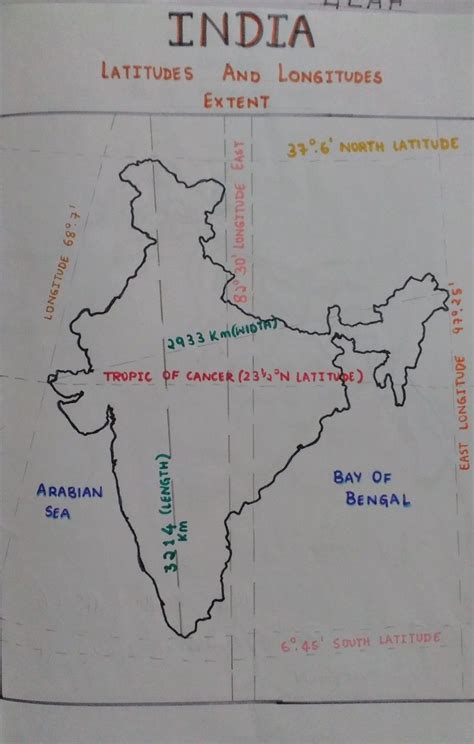 INDIA
LATITUDES AND LONGITUDES
EXTENT
37°.6' NORTH LATITUDE
LONGITUDE 68°.7'
30' LONGITUDE EAST
2933 Km (WIDTH)
TROPIC OF CANCER (23½°N LATITUDE)
EAST LONGITUDE 97°.25'
ARABIAN
SEA
3214 (LENGTH)
Km
BAY OF
BENGAL
6°.45' SOUTH LATITUDE